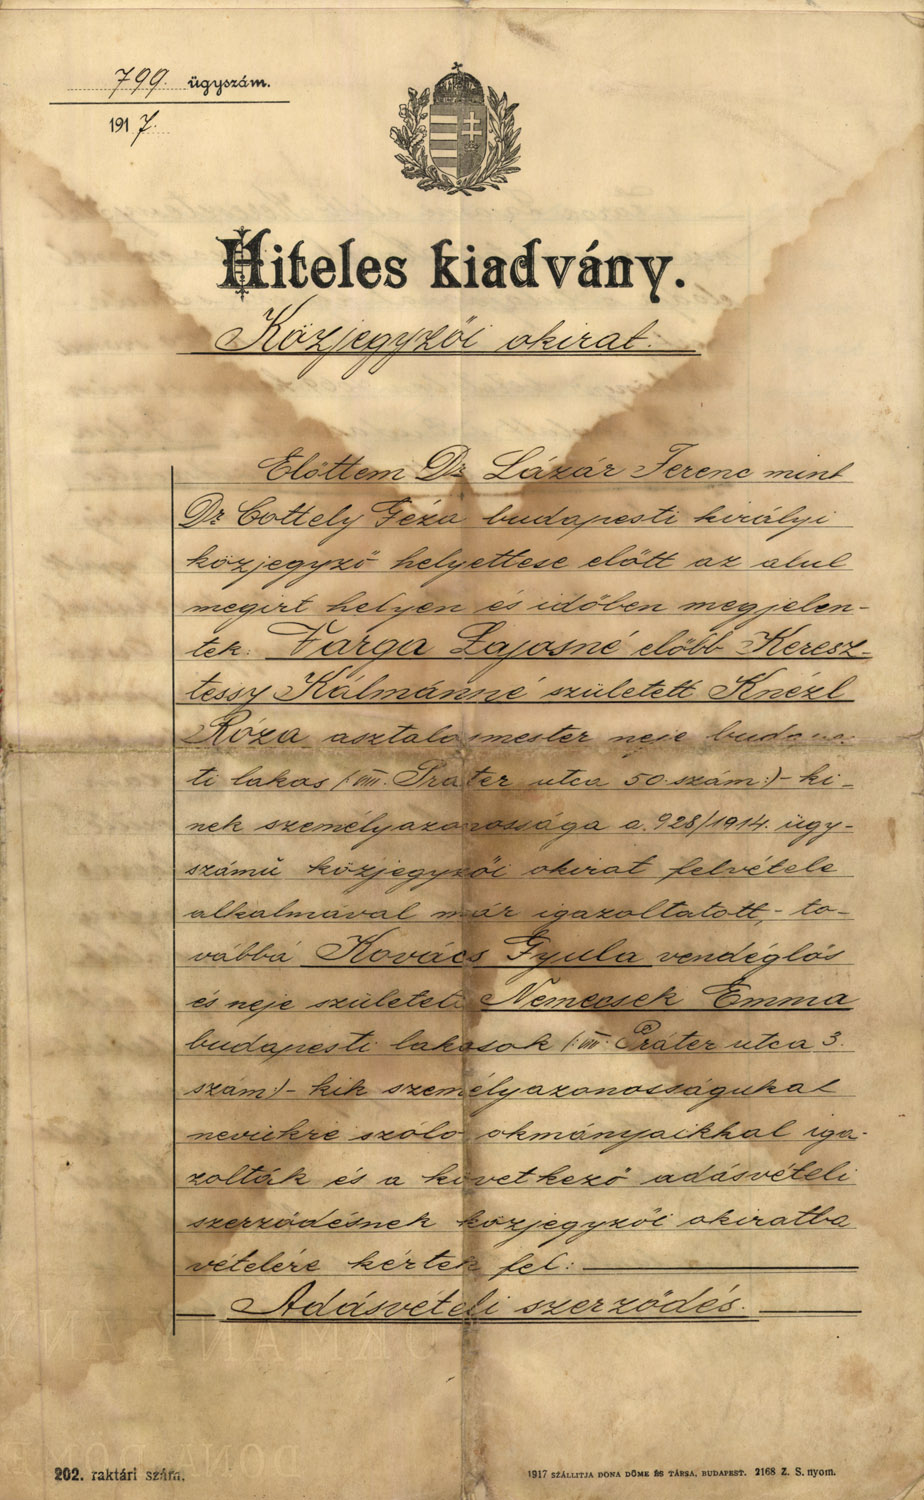 799. ügyszám.
1917.
Hiteles kiadvány.
Közjegyzői okirat.
Előttem Dr Lázár Ferenc mint
Dr Cottely Géza budapesti királyi
közjegyző helyettese előtt az alul
megirt helyen és időben megjelen-
tek: Varga Lajosné előbb Keresz-
tessy Kálmánné született Knézl
Róza asztalosmester neje
ti lakos (:VIII. Práter utca 50. szám:)- ki-
nek személyazonossága a 928/1914. ügy-
számű közjegyzői okirat felvétele
alkalmával már igazoltatott,- to-
vábbá Kovács Gyula vendéglős
és neje született Nemecsek Emma
budapesti lakosok (:VIII. Práter utca 3.
szám:)- kik személyazonosságukat
nevükre szóló okmányaikkal iga-
zolták és a következő adásvételi
szerződésnek közjegyzői okiratba
vételére kértek fel:
Adásvételi szerződés.
202. raktári szám.
1917 SZÁLLITJA DÓNA DÖME ÉS TÁRSA, BUDAPEST. 2168 Z. S. nyom.